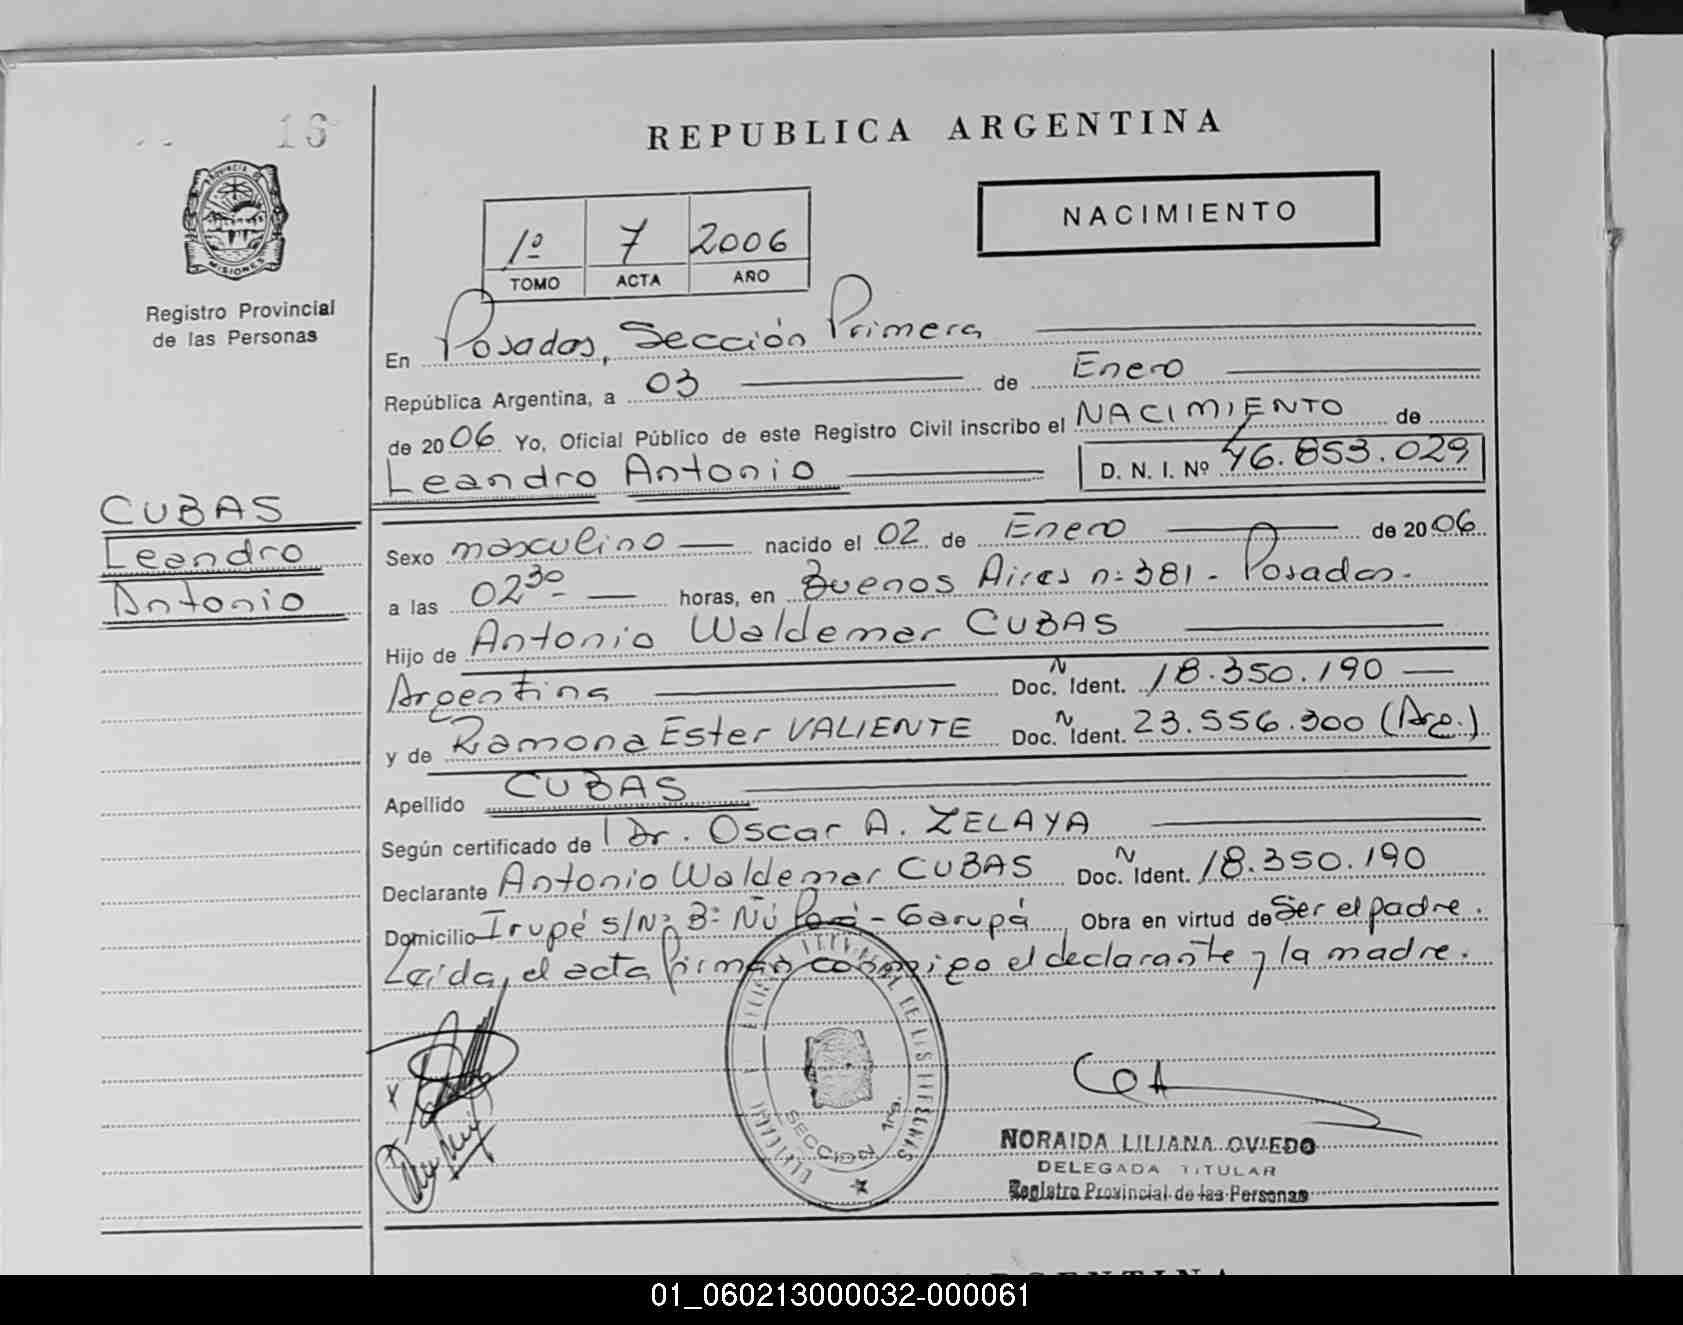 16
REPUBLICA ARGENTINA
PROVINCIA DE
MISIONES
Registro Provincial
de las Personas
NACIMIENTO
1º 7 2006
TOMO ACTA AÑO
En Posadas, Sección Primera
República Argentina, a 03 de Enero
de 2006 Yo, Oficial Público de este Registro Civil inscribo el NACIMIENTO de
Leandro Antonio D. N. I. Nº 46.853.029
CUBAS
Leandro
Antonio
Sexo masculino nacido el 02 de Enero de 2006
a las 02 30 horas, en Buenos Aires n: 381 - Posadas.
Hijo de Antonio Waldemar CUBAS
Argentina Doc. N Ident. 18.350.190
y de Ramona Ester VALIENTE Doc. N Ident. 23.556.300 (Arg.)
Apellido CUBAS
Según certificado de Dr. Oscar A. ZELAYA
Declarante Antonio Waldemar CUBAS Doc. N Ident. 18.350.190
Domicilio Irupé s/Nº Bº Ñú Porá - Garupá Obra en virtud de Ser el padre.
Leída, el acta firman conmigo el declarante y la madre.
SECCION 1ra.
NORAIDA LILIANA OVIEDO
DELEGADA TITULAR
Registro Provincial de las Personas
01_060213000032-000061